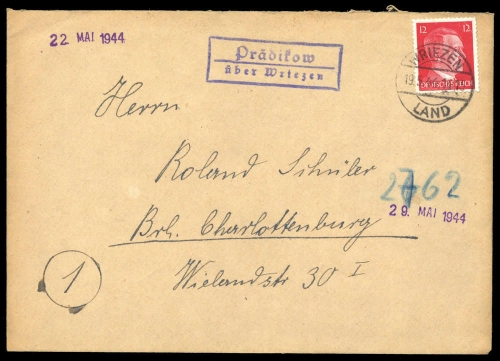 22. MAI 1944
Prädikow
über Wriezen
12 12
DEUTSCHES REICH
WRIEZEN
19.5.
LAND
Herrn
Roland Schüler
2762
29. MAI 1944
Brl. Charlottenburg
Wielandstr 30 I
1